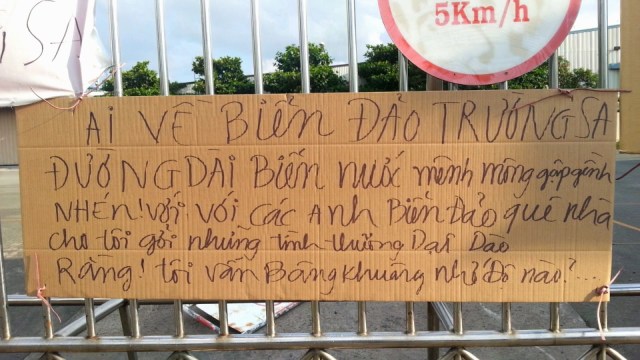 SA
5Km/h
AI VỀ BIỂN ĐẢO TRƯỜNG SA
ĐƯỜNG DÀI BIỂN NƯỚC mênh mông gập gềnh
NHẮN! với với các Anh Biển Đảo quê nhà
cho tôi gởi những tình thương Dạt Dào
Rằng! tôi vẫn Bâng khuâng nhớ Đô nào?...